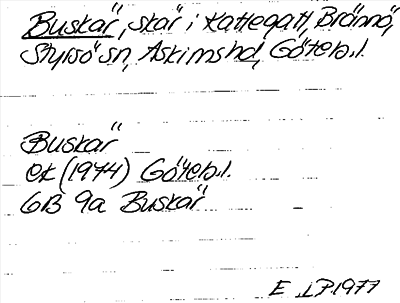 Buskär, skär i Kattegatt, Brännö,
Styrsö sn, Askims hd, Göteb.l.
Buskär
ek (1974) Göteb.l.
6B 9a Buskär
E LP. 1977